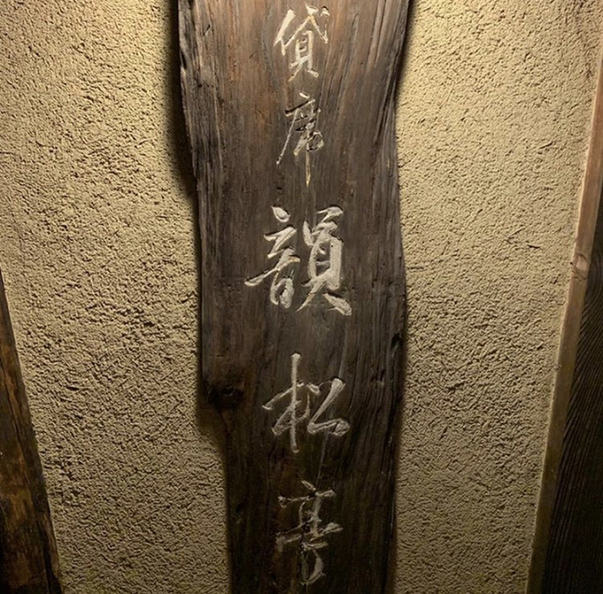 貸席韻松亭